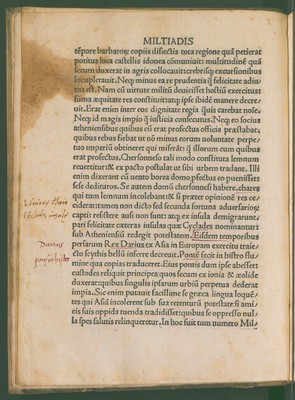 MILTIADIS
tẽpore barbaroꝝ copiis disiectis tota regione quã petierat
potitus loca castellis idonea cõmuniuit: multitudinẽ quã
secum duxerat in agris collocauit: crebrisqꝫ excursionibus
locupletauit. Neqꝫ minus ea re prudentia ꝗ̃ felicitate adiu
tus est. Nam cũ uirtute militũ deuicisset hostiũ exercitus:
summa æquitate res constituit: atqꝫ ipse ibidẽ manere decre
uit. Erat enim inter eos dignitate regia quãuis carebat noĩe.
Neqꝫ id magis impio ꝗ̃ iusticia consecutus. Neqꝫ eo socius
atheniensibus quibus cũ erat profectus officia præstabat.
quibus rebus fiebat ut nõ minus eorum uoluntate perpe
tuo imperiũ obtineret qui miserãt: ꝗ̃ illorum cum quibus
erat profectus. Chersoneso tali modo constituta lemnum
reuertitur: & ex pacto postulat ut sibi urbem tradant. Illi
enim dixerant cũ uento borea domo ꝓfectus eo puenisset:
sese dedituros. Se autem domũ chersonesi habere. chares
qui tum lemnum incolebant: & si præter opinionẽ res ce-
ciderat tamen non dicto sed secunda fortuna aduersarioꝝ
capti: resistere ausi non sunt: atqꝫ ex insula demigrarunt.
pari felicitate cæteras insulas quæ Cyclades nominantur:
sub Atheniensiũ redegit potestatem. Eisdem temporibus
persarum Rex Darius ex Asia in Europam exercitu traie-
cto scythis bellũ inferre decreuit. Pontẽ fecit in histro flu-
mine qua copias traduceret. Eius pontis dum ipse abesset:
custodes reliquit principes: quos secum ex ionia & æolide
duxerat: quibus singulis ipsarum urbiũ perpetua dederat
impia. Sic enim putauit facillime se græca lingua loquẽ-
tes qui Asiã incolerent sub sua retenturũ potestate si ami-
cis suis oppida tuenda tradidisset: quibus se oppresso nul-
la spes salutis relinqueretur. In hoc fuit tum numero Mil-
Cyclades insulæ
Darius